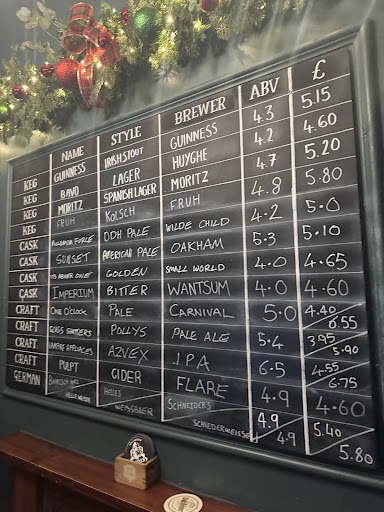 NAME STYLE BREWER ABV £
KEG GUINNESS IRISH STOUT GUINNESS 4.3 5.15
KEG BAVO LAGER HUYGHE 4.2 4.60
KEG MORITZ SPANISH LAGER MORITZ 4.7 5.20
KEG FRUH KOLSCH FRUH 4.8 5.80
CASK FORCE DDH PALE WILDE CHILD 4.2 5.0
CASK SUNSET AMERICAN PALE OAKHAM 5.3 5.10
CASK GOLDEN SMALL WORLD 4.0 4.65
CASK IMPERIUM BITTER WANTSUM 4.0 4.60
CRAFT ONE O'CLOCK PALE CARNIVAL 5.0 4.40 6.55
CRAFT POLLYS PALE ALE 5.4 3.95 5.90
CRAFT AZVEX IPA 6.5 4.55 6.75
CRAFT PULPT CIDER FLARE 4.9 4.60
GERMAN HELLES SCHNEIDER'S 4.9 5.40
HELLE WEISSE WEISSBIER SCHNEIDERWEISSE 4.9 5.80